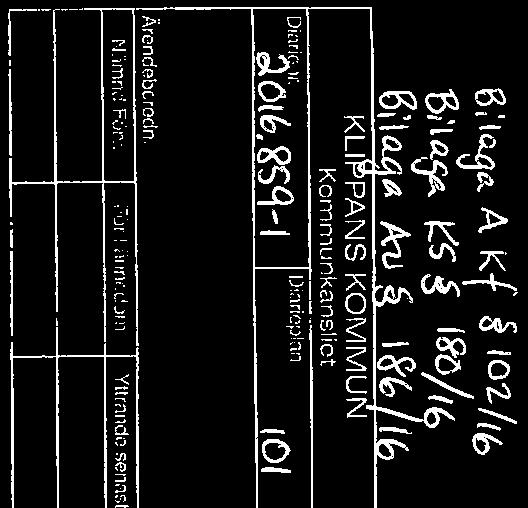 Bilaga A Kf § 102/16
Bilaga KS § 180/16
Bilaga AU § 186/16
KLIPPANS KOMMUN
Kommunkansliet
Diarienr. Diarieplan
2016.859-1 101
Ärendeberedn.
Nämnd Förv. För kännedom Yttrande senast